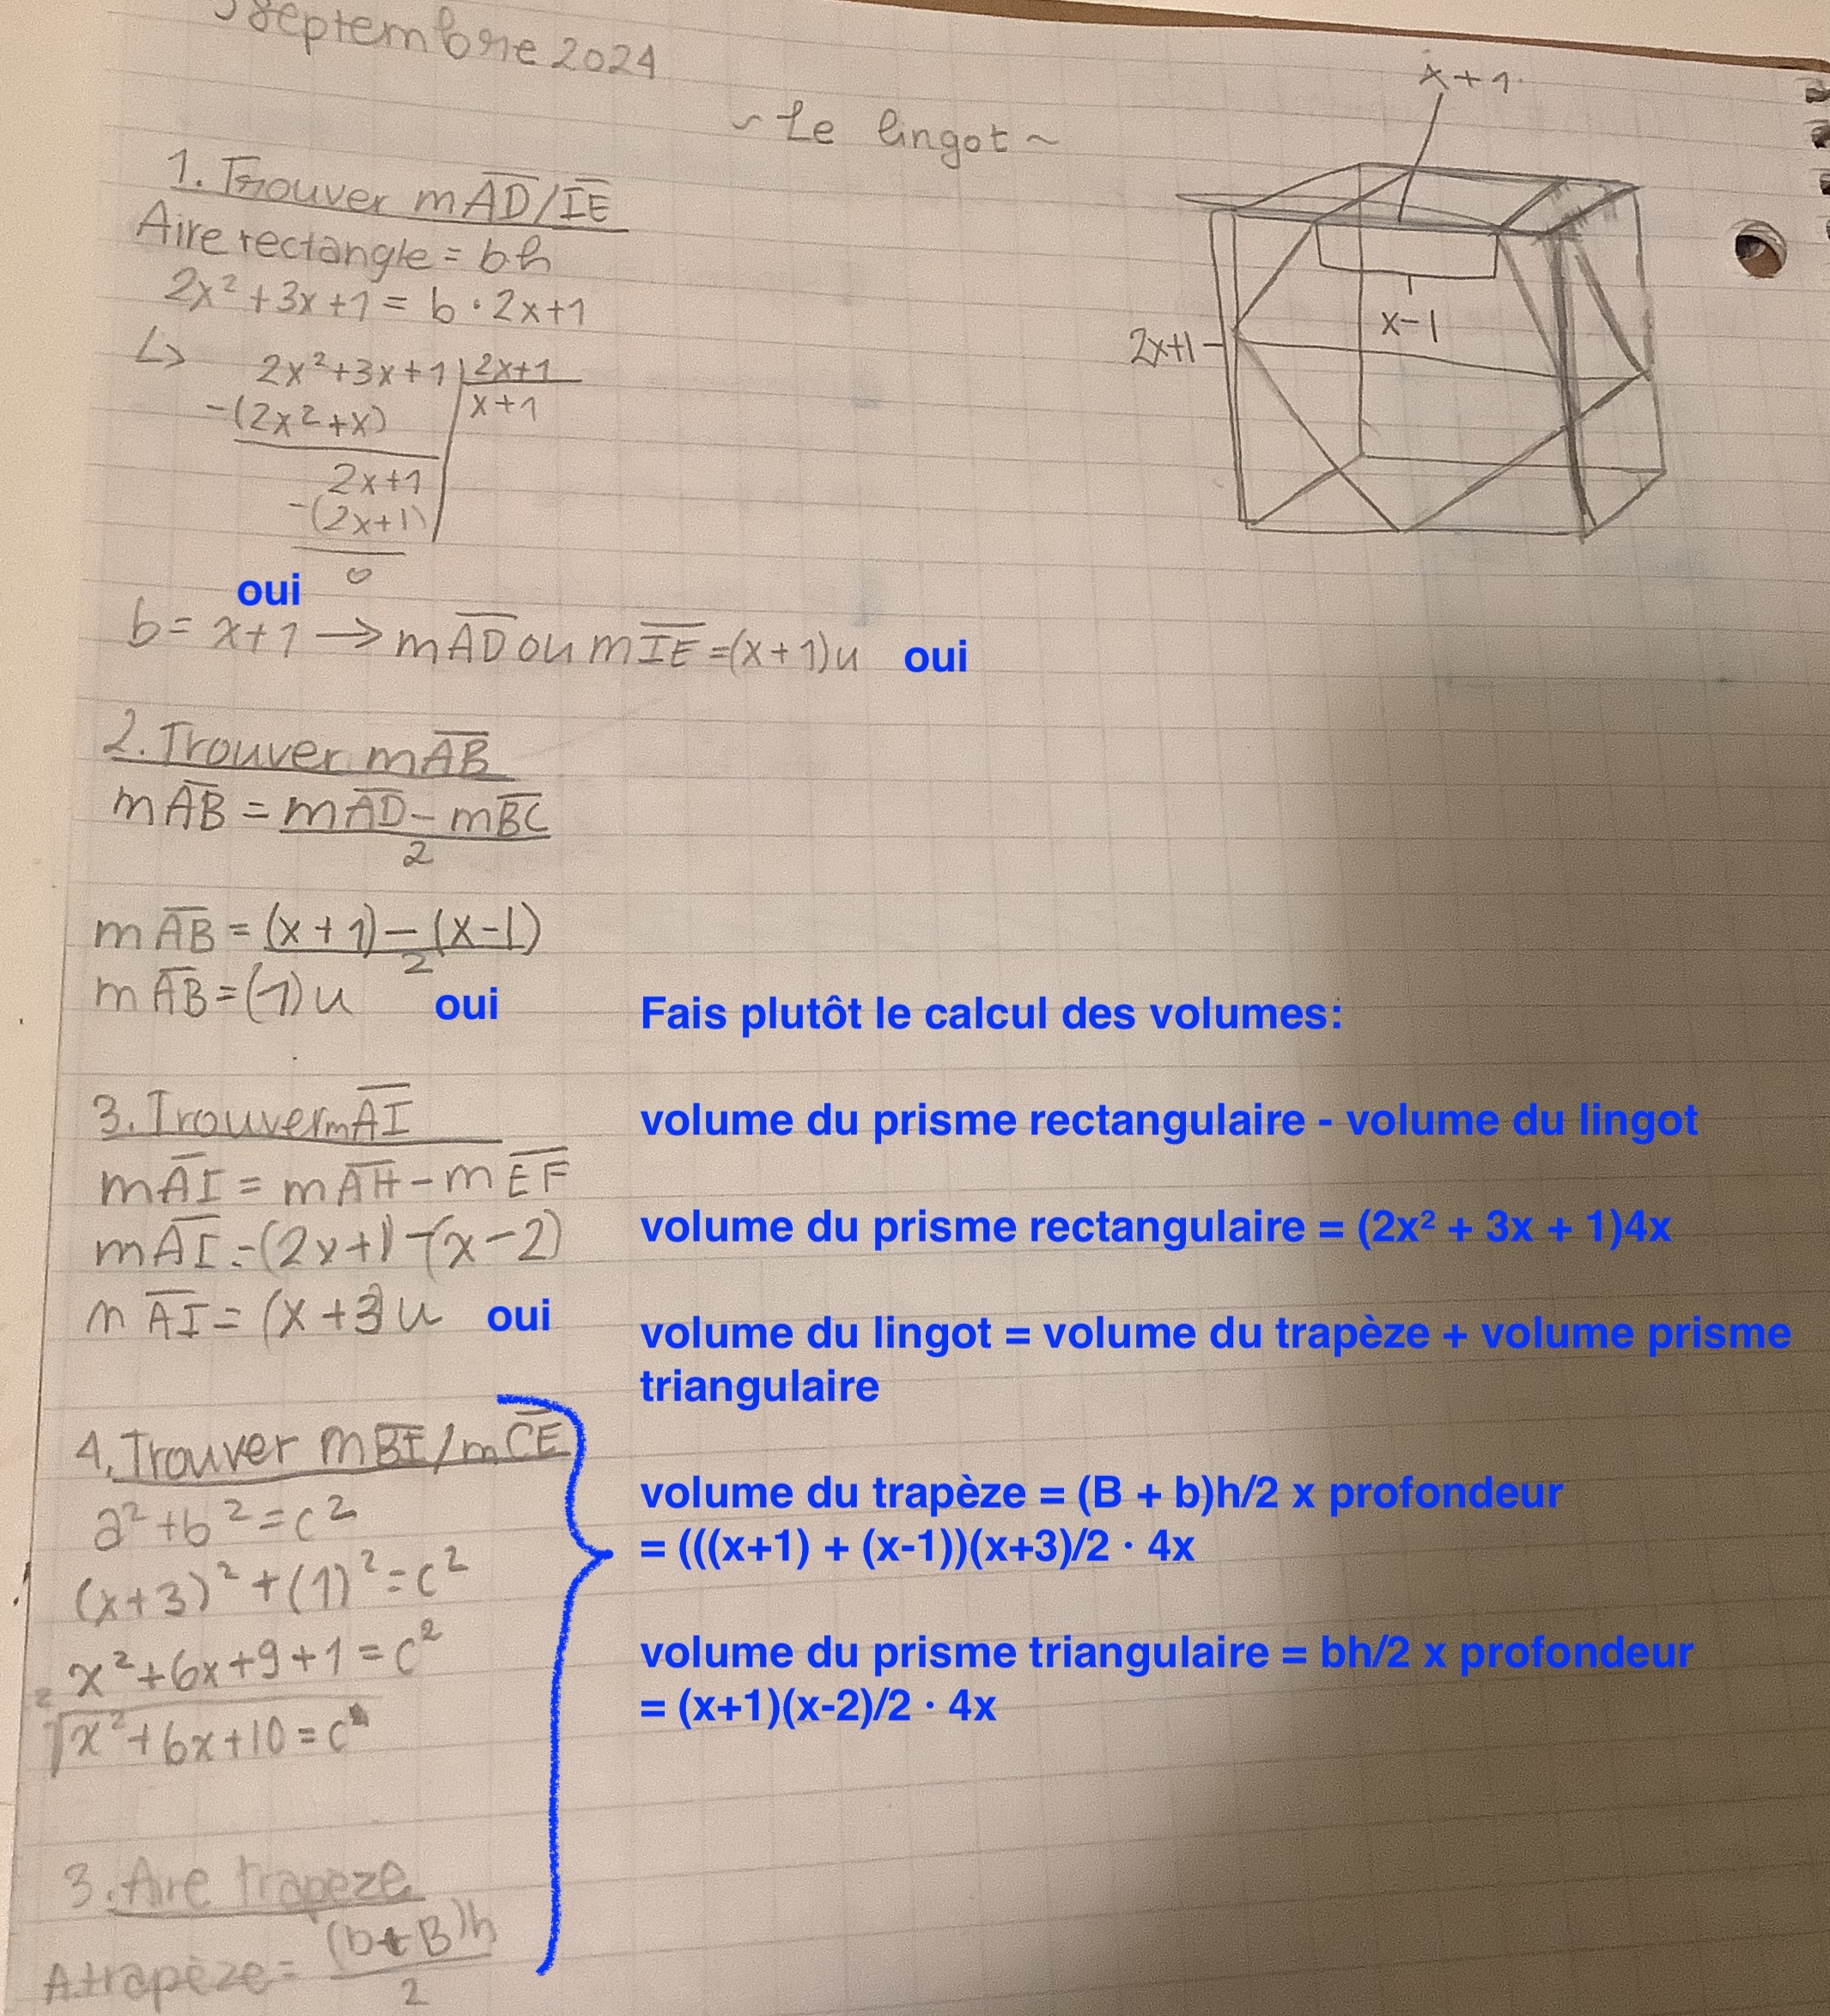 Septembre 2024
~ Le lingot ~
x+1
2x+1
x-1
1. Trouver mAD/IE
Aire rectangle = bh
2x²+3x+1 = b · 2x+1
↳ 2x²+3x+1 | 2x+1
-(2x²+x) x+1
2x+1
-(2x+1)
0
oui
b = x+1 → mAD ou mIE = (x+1)u oui
2. Trouver mAB
mAB = mAD - mBC
2
mAB = (x+1) - (x-1)
2
mAB = (1)u oui
3. Trouver mAI
mAI = mAH - mEF
mAI = (2x+1) - (x-2)
mAI = (x+3)u oui
4. Trouver mBI/mCE
a²+b²=c²
(x+3)²+(1)²=c²
x²+6x+9+1=c²
√x²+6x+10=c
3. Aire trapeze
A.trapèze = (b+B)h
2
Fais plutôt le calcul des volumes:
volume du prisme rectangulaire - volume du lingot
volume du prisme rectangulaire = (2x² + 3x + 1)4x
volume du lingot = volume du trapèze + volume prisme
triangulaire
volume du trapèze = (B + b)h/2 x profondeur
= (((x+1) + (x-1))(x+3)/2 · 4x
volume du prisme triangulaire = bh/2 x profondeur
= (x+1)(x-2)/2 · 4x